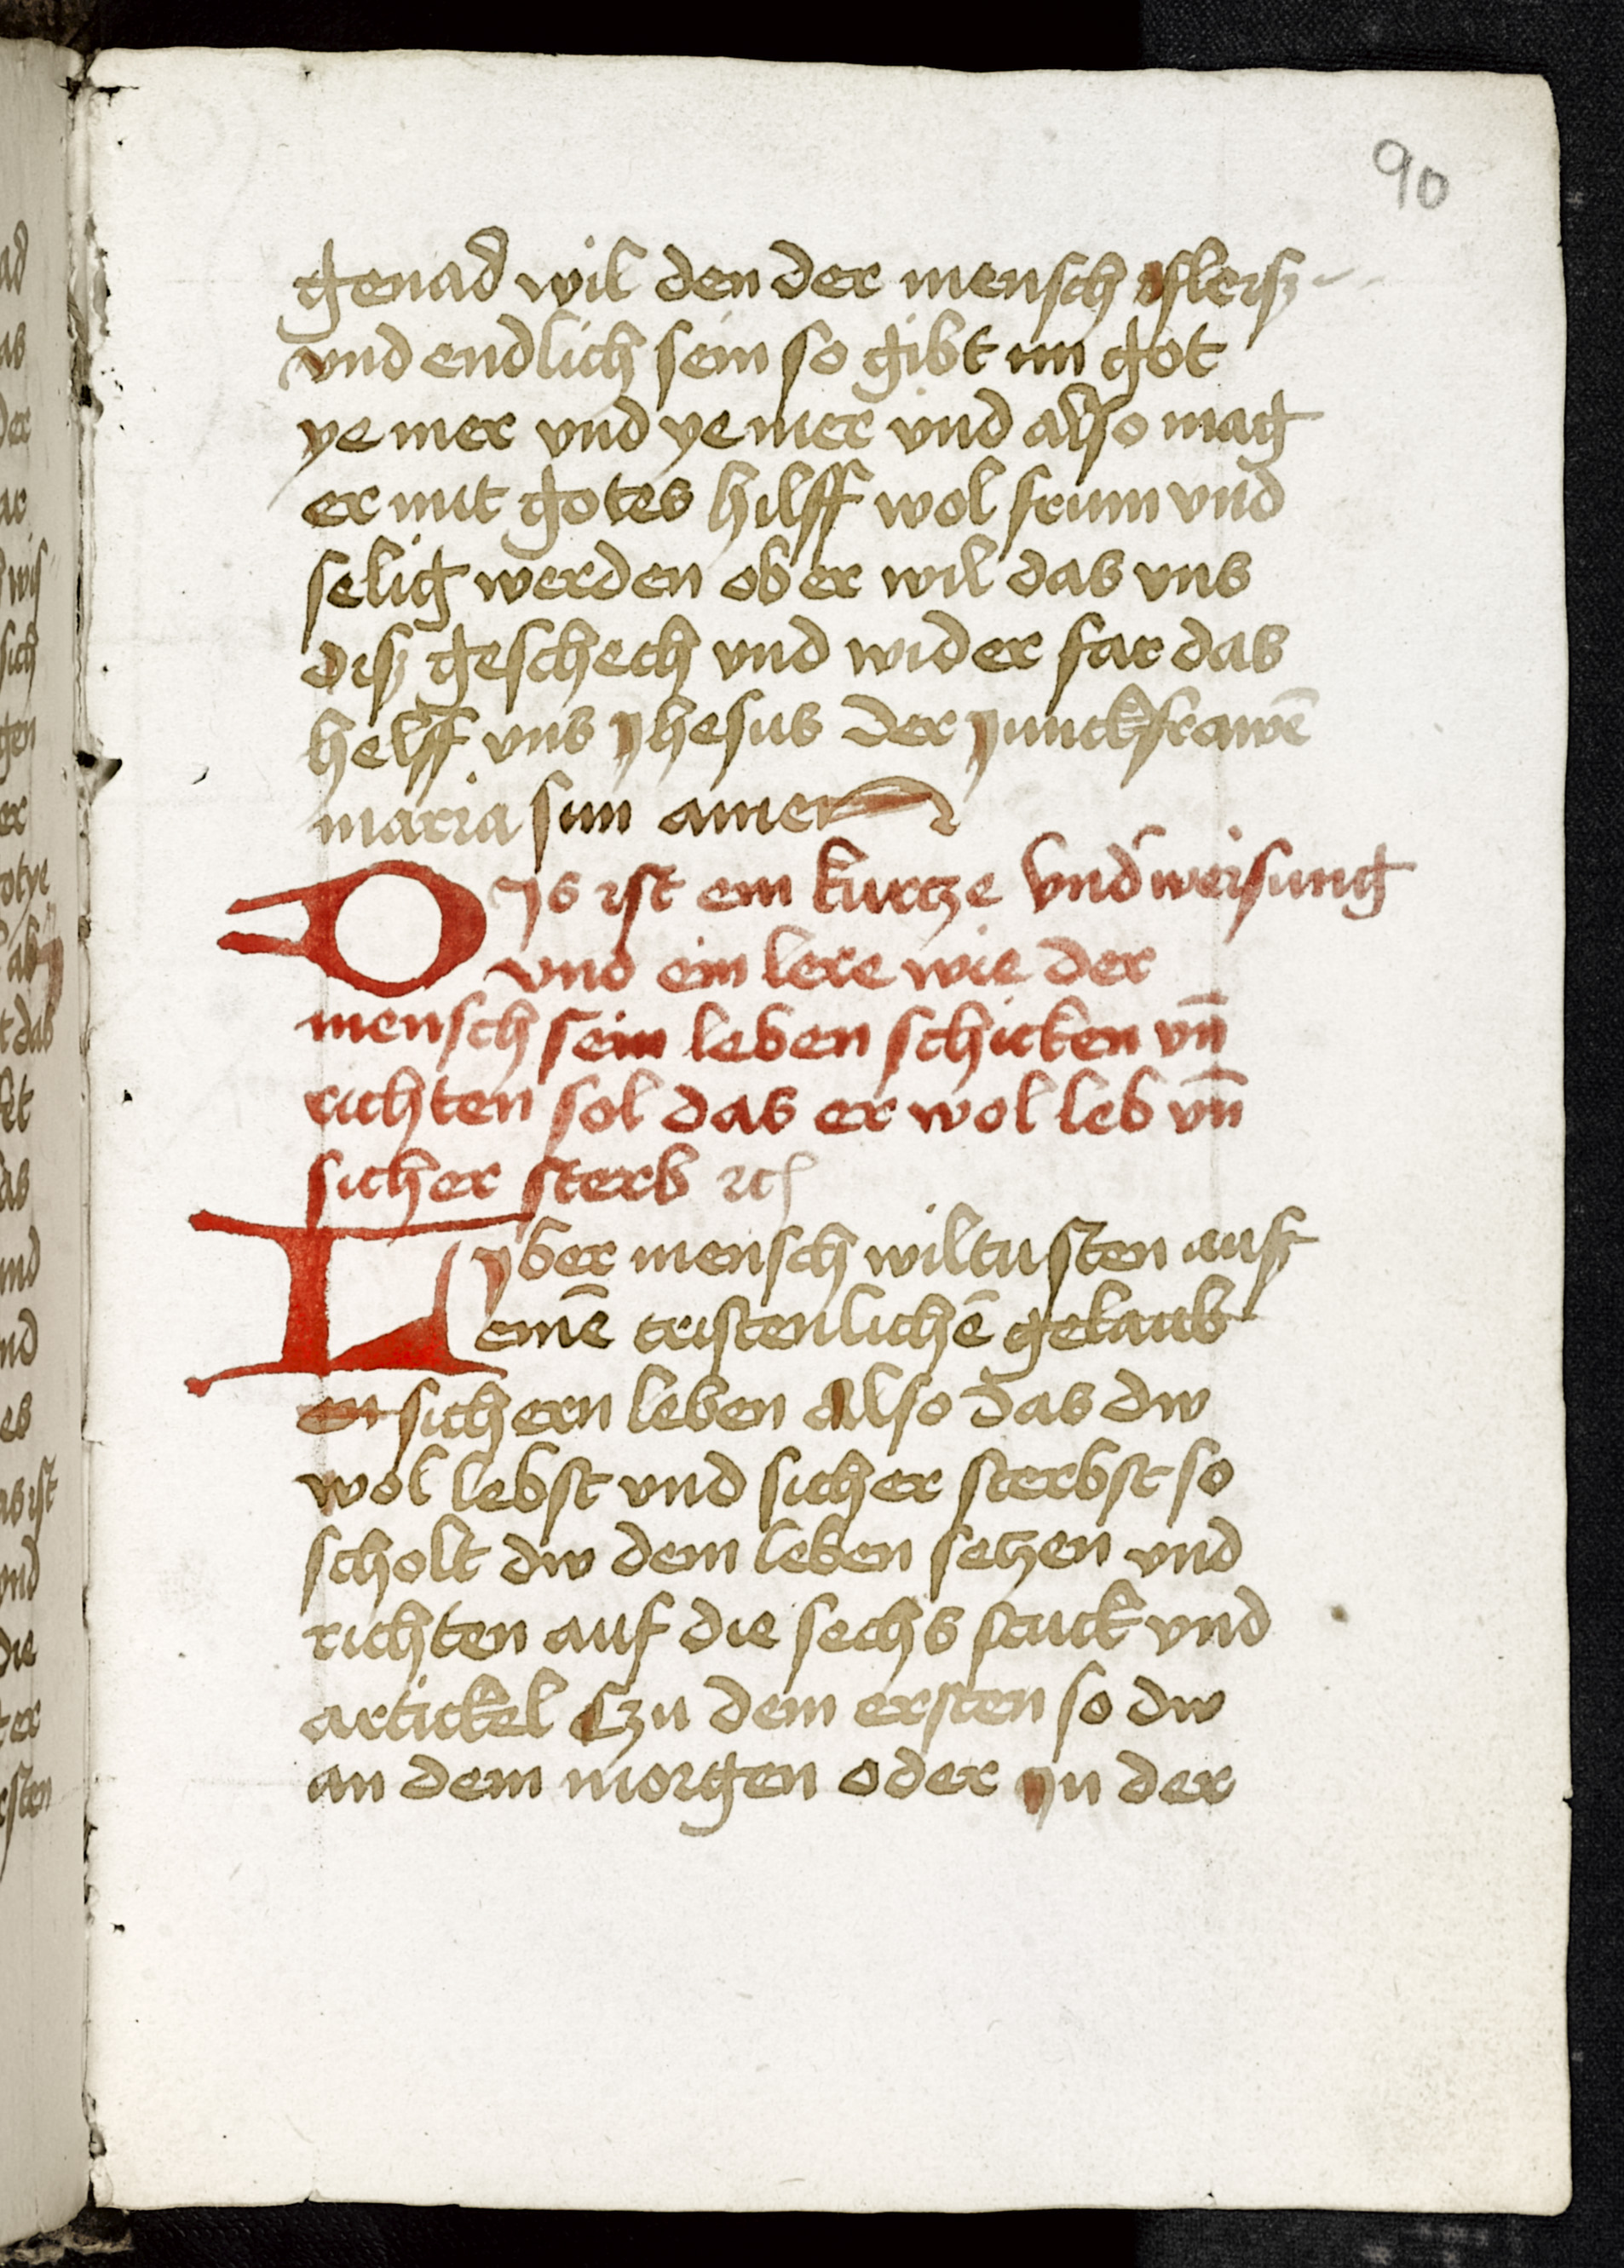 90
genad wil den der mensch fleisz
vnd endlich sein so gibt im got
ye mer vnd ye mer vnd also mag
er mit gotes hilff wol frum vnd
selig werden ob er wil das vns
disz geschech vnd wider far das
helff vns yhesus der junckfrawē
maria sun amen
Dis ist ein kurcze vndweisung
vnd ein lere wie der
mensch sein leben schicken vn̄
richten sol das er wol leb vn̄
sicher sterb ꝛcꝭ
Lyber mensch wiltu sten auff
einē cristenlichē gelaub
en sichern leben Also das dw
wol lebst vnd sicher sterbst so
scholt dw dem leben seczen vnd
richten auf die sechs stuck vnd
artickel Czu dem ersten so dw
an dem morgen oder yn der